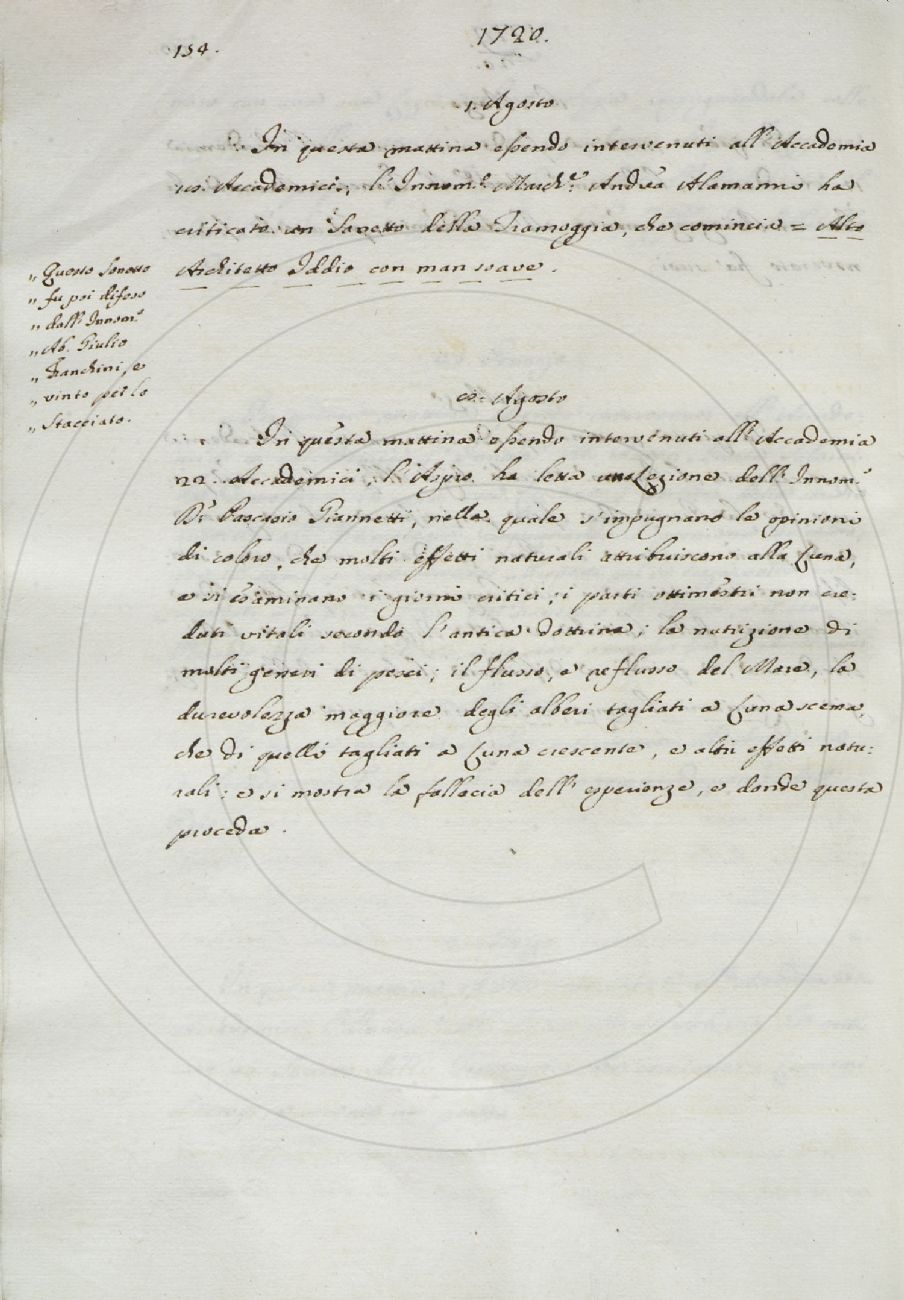 154.
1720.
1. Agosto
In questa mattina essendo intervenuti all'Accademia
Accademici; l'Innom.º March.e Andrea Alamanni ha
criticato un Sonetto della Tramoggia, che comincia = Alto
Architetto Iddio con man soave.
„ Questo Sonetto
„ fu poi difeso
„ dall'Innom.º
„ Ab. Giulio
„ Franchini, e
„ vinto per lo
„ Stacciato.
Agosto
In questa mattina essendo intervenuti all'Accademia
22. Accademici; l'Aspro ha letta una Lezione dell'Innom.º
D.r Pascasio Giannetti, nella quale s'impugnano le opinioni
di coloro, che molti effetti naturali attribuiscono alla Luna,
e si esaminano i giorni critici; i parti ottimestri non cre-
duti vitali secondo l'antica dottrina; la nutrizione di
molti generi di pesci; il flusso, e reflusso del Mare, la
durevolezza maggiore degli alberi tagliati a Luna scema,
che di quelli tagliati a Luna crescente, e altri effetti natu-
rali: e si mostra la fallacia dell'esperienze, e donde questa
proceda.